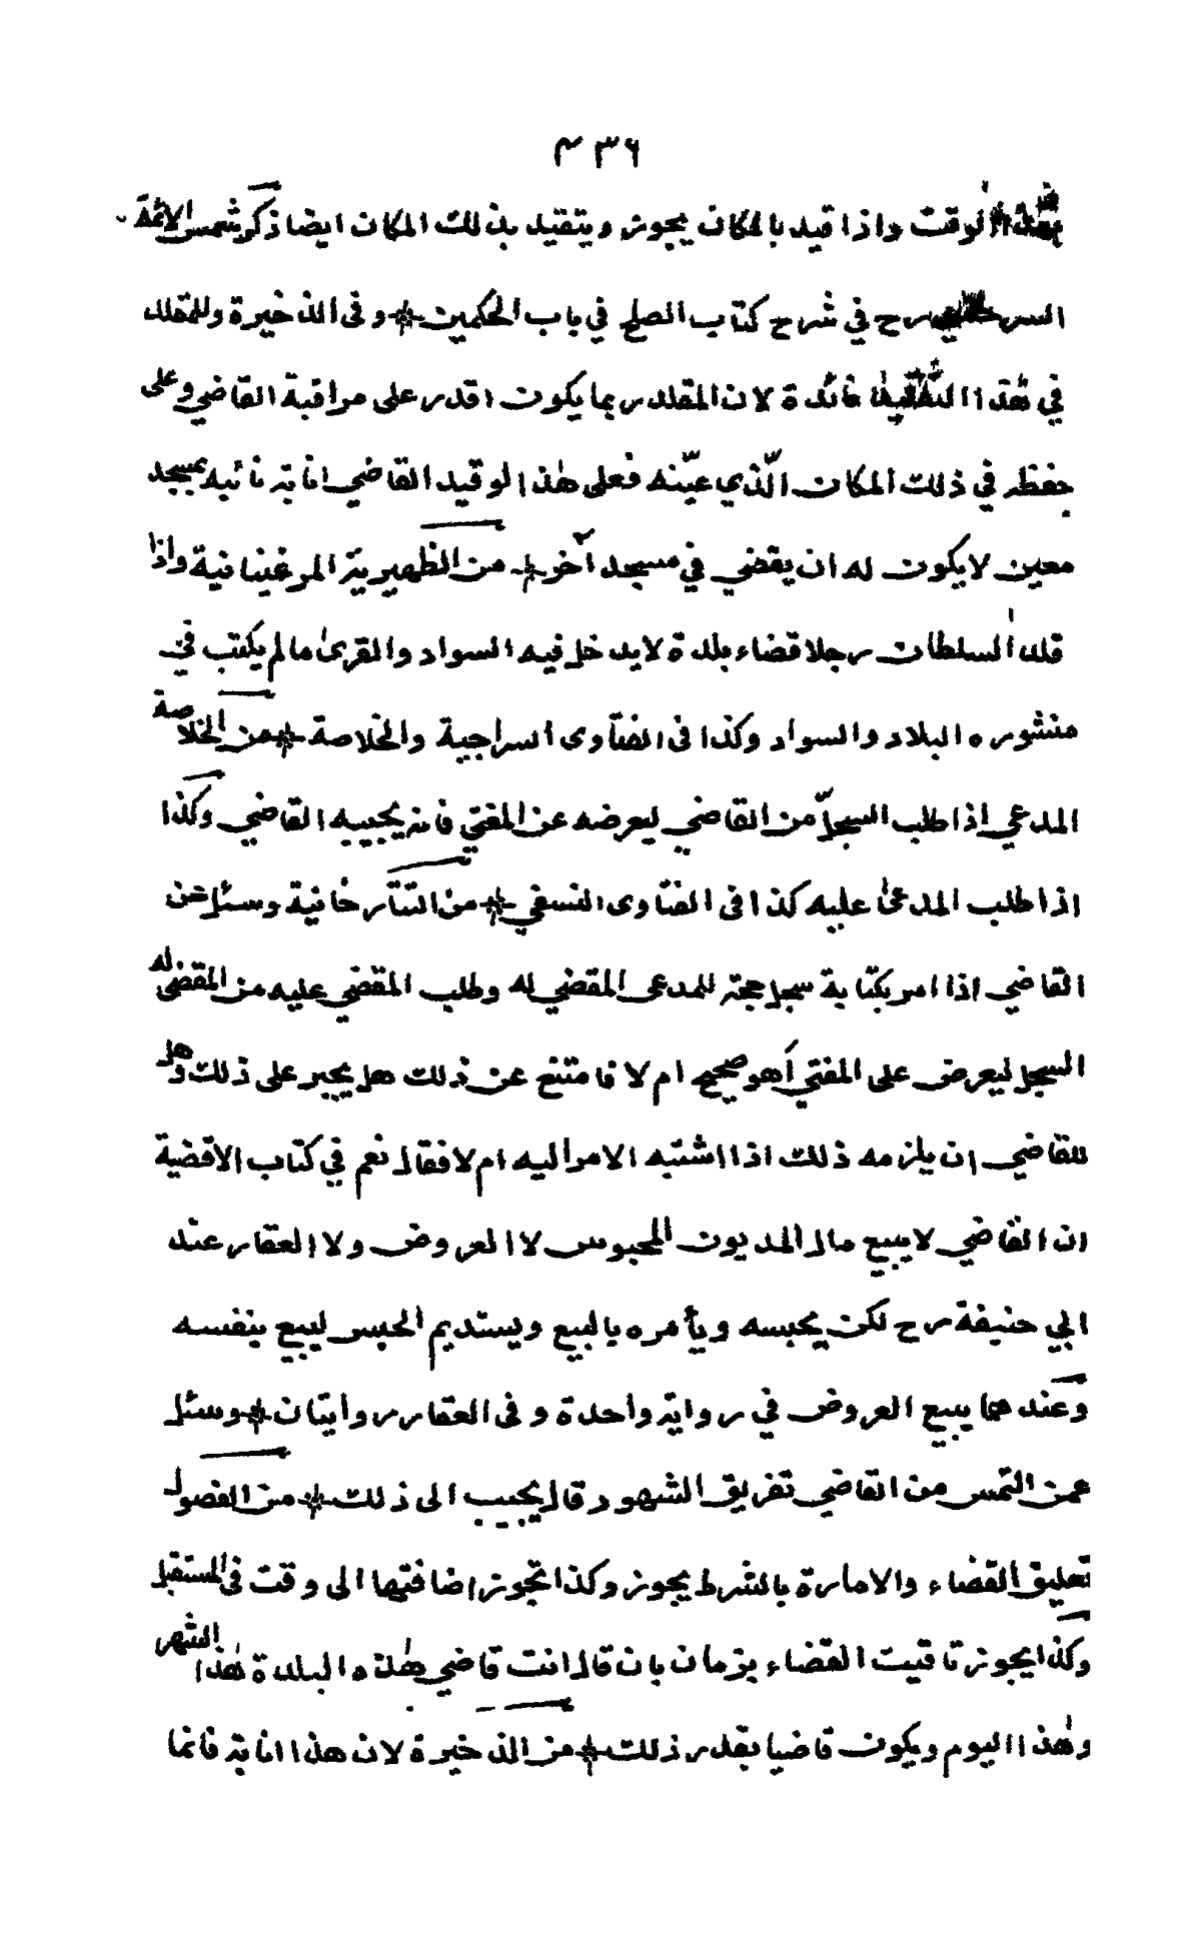 ٤٣٦
بهذا الوقت واذا قيد بالمكان يجوز ويتقيد بذلك المكان ايضا ذكر شمس الائمة
السرخسي رح في شرح كتاب الصلح في باب الحكمين وفى الذخيرة وللمقلد
في هٰذا التقييد فائدة لان المقلد ربما يكون اقدر على مراقبة القاضي وعلى
حفظه في ذلك المكان الّذي عيّنه فعلى هٰذا لو قيد القاضي انابة نائبه بمسجد
معين لا يكون له ان يقضي في مسجد آخر من الظهيرية المرغينانية واذا
قلد السلطان رجلا قضاء بلدة لا يدخل فيه السواد والقرىٰ ما لم يكتب في
منشوره البلاد والسواد وكذا فى الفتاوى السراجية والخلاصة من الخلاصة
المدعي اذا طلب السجلّ من القاضي ليعرضه عن المفتي فانه يجيبه القاضي وكذا
اذا طلب المدعىٰ عليه كذا فى الفتاوى النسفي من التتارخانية وسئل عن
القاضي اذا امر بكتابة سجل حجة للمدعى المقضي له وطلب المقضي عليه من المقضى له
السجل ليعرض على المفتي أهو صحيح ام لا فامتنع عن ذلك هل يجبر على ذلك وهل
للقاضي ان يلزمه ذلك اذا اشتبه الامر اليه ام لا فقال نعم في كتاب الاقضية
ان القاضي لا يبيع مال المديون المحبوس لا العروض ولا العقار عند
ابي حنيفة رح لكن يحبسه ويأمره بالبيع ويستديم الحبس ليبيع بنفسه
وعندهما يبيع العروض في رواية واحدة وفى العقار روايتان وسئل
عمن التمس من القاضي تفريق الشهود قال يجيب الى ذلك من الفصول
تعليق القضاء والامارة بالشرط يجوز وكذا تجوز اضافتها الى وقت فى المستقبل
وكذا يجوز تاقيت القضاء بزمان بان قال انت قاضي هٰذه البلدة هٰذا الشهر
وهٰذا اليوم ويكون قاضيا بقدر ذلك من الذخيرة لان هذا انابة فانما